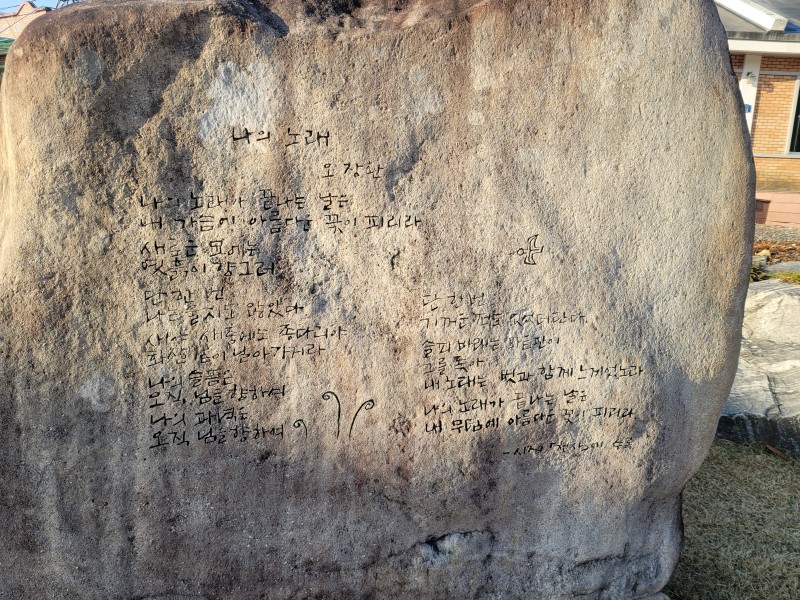 나의 노래
오장환
나의 노래가 끝나는 날은
내 가슴에 아름다운 꽃이 피리라
새로운 묘에는
옛 흙이 향그러
단 한 번
나는 울지도 않았다
새야 새 중에도 종다리야
화살같이 날아가거라
나의 슬픔은
오직 님을 향하여
나의 과녁은
오직 님을 향하여
단 한번
기꺼운 적도 없었더란다
슬피 바래는 마음만이
그를 좇아
내 노래는 벗과 함께 느끼었노라
나의 노래가 끝나는 날은
내 무덤에 아름다운 꽃이 피리라